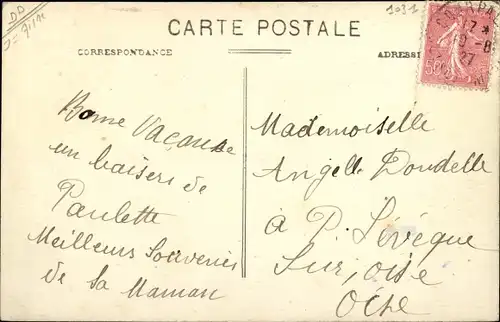 CARTE POSTALE
CORRESPONDANCE
ADRESSE
1031
17 *
27
Bonne Vacance
un baisers de
Paulette
Meilleurs Souvenirs
de Sa Maman
Mademoiselle
Angelle Doudelle
à P. Lévèque
Sur, oise
Oise